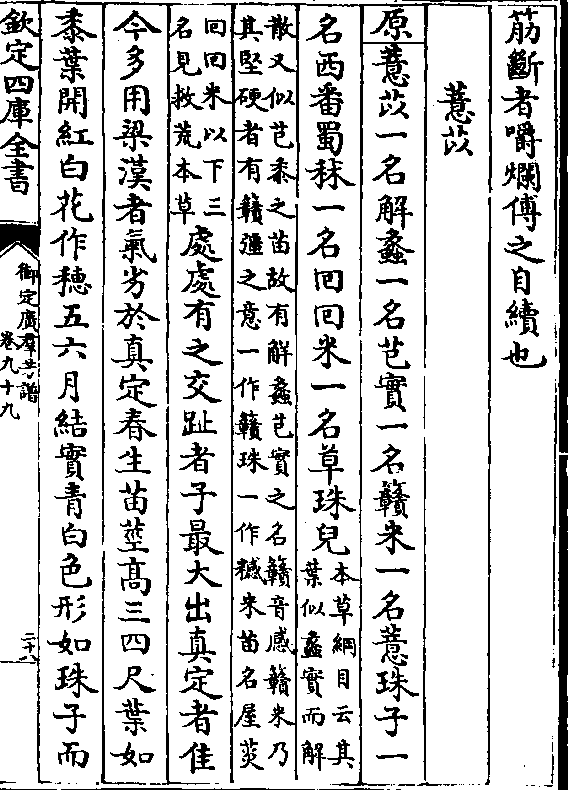 筋斷者嚼爛傅之自續也
薏苡
原薏苡一名解蠡一名芑實一名䉺米一名薏珠子一
名西番蜀秫一名回回米一名草珠兒本草綱目云其
葉似蠡實而解
散又似芑黍之苗故有解蠡芑實之名䉺音感䉺米乃
其堅硬者有䉺彊之意一作䉺珠一作米苗名屋菼
回回米以下三
名見救荒本草處處有之交趾者子最大出真定者佳
今多用梁漢者氣劣於真定春生苗莖高三四尺葉如
黍葉開紅白花作穗五六月結實青白色形如珠子而
欽定四庫全書
御定廣羣芳譜
卷九十九
二十八